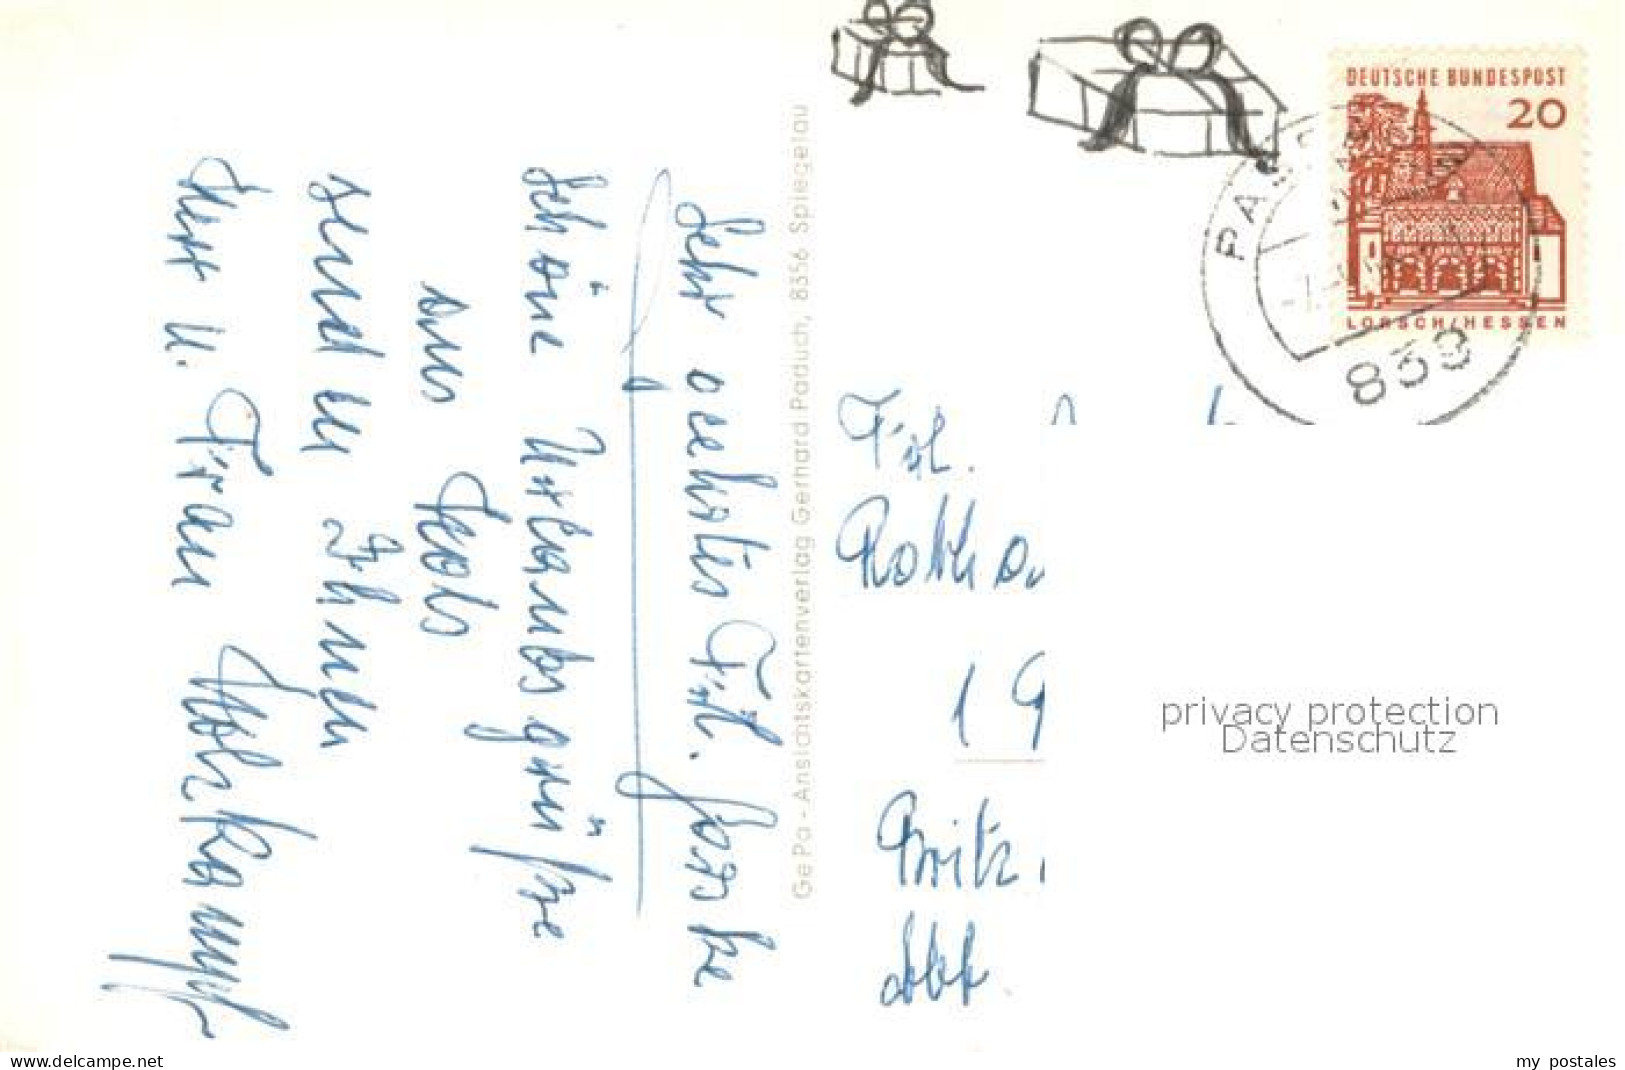 Sehr geehrtes Frl. Goriske
Schöne Urlaubsgrüße
aus Scols
senden Ihnen
Herr u. Frau Holzkampf
Ge Pa - Ansichtskartenverlag Gerhard Paduch, 8356 Spiegelau
DEUTSCHE BUNDESPOST
20
LORSCH/HESSEN
PASSAU
839
Frl.
19
Britz
privacy protection
Datenschutz
www.delcampe.net
my postales